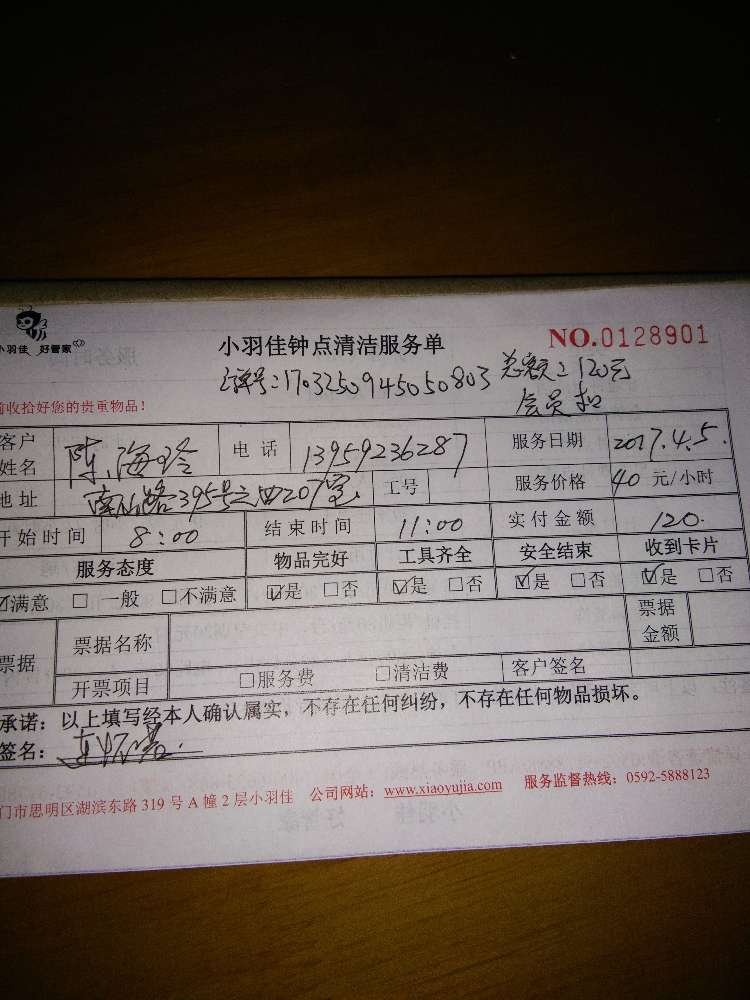 小羽佳 好管家
小羽佳钟点清洁服务单
NO.0128901
订单号:1703250945050803 总额:120元
会员扣
前收拾好您的贵重物品!
客户姓名 陈海玲 电话 13959236287 服务日期 2017.4.5.
地址 南山路395号之四207室 工号 服务价格 40 元/小时
开始时间 8:00 结束时间 11:00 实付金额 120.
服务态度 物品完好 工具齐全 安全结束 收到卡片
☑满意 □ 一般 □不满意 ☑是 □否 ☑是 □否 ☑是 □否 ☑是 □否
票据 票据名称 票据金额
开票项目 □服务费 □清洁费 客户签名
承诺:以上填写经本人确认属实,不存在任何纠纷,不存在任何物品损坏。
签名:
门市思明区湖滨东路 319 号 A 幢 2 层小羽佳 公司网站:www.xiaoyujia.com 服务监督热线:0592-5888123